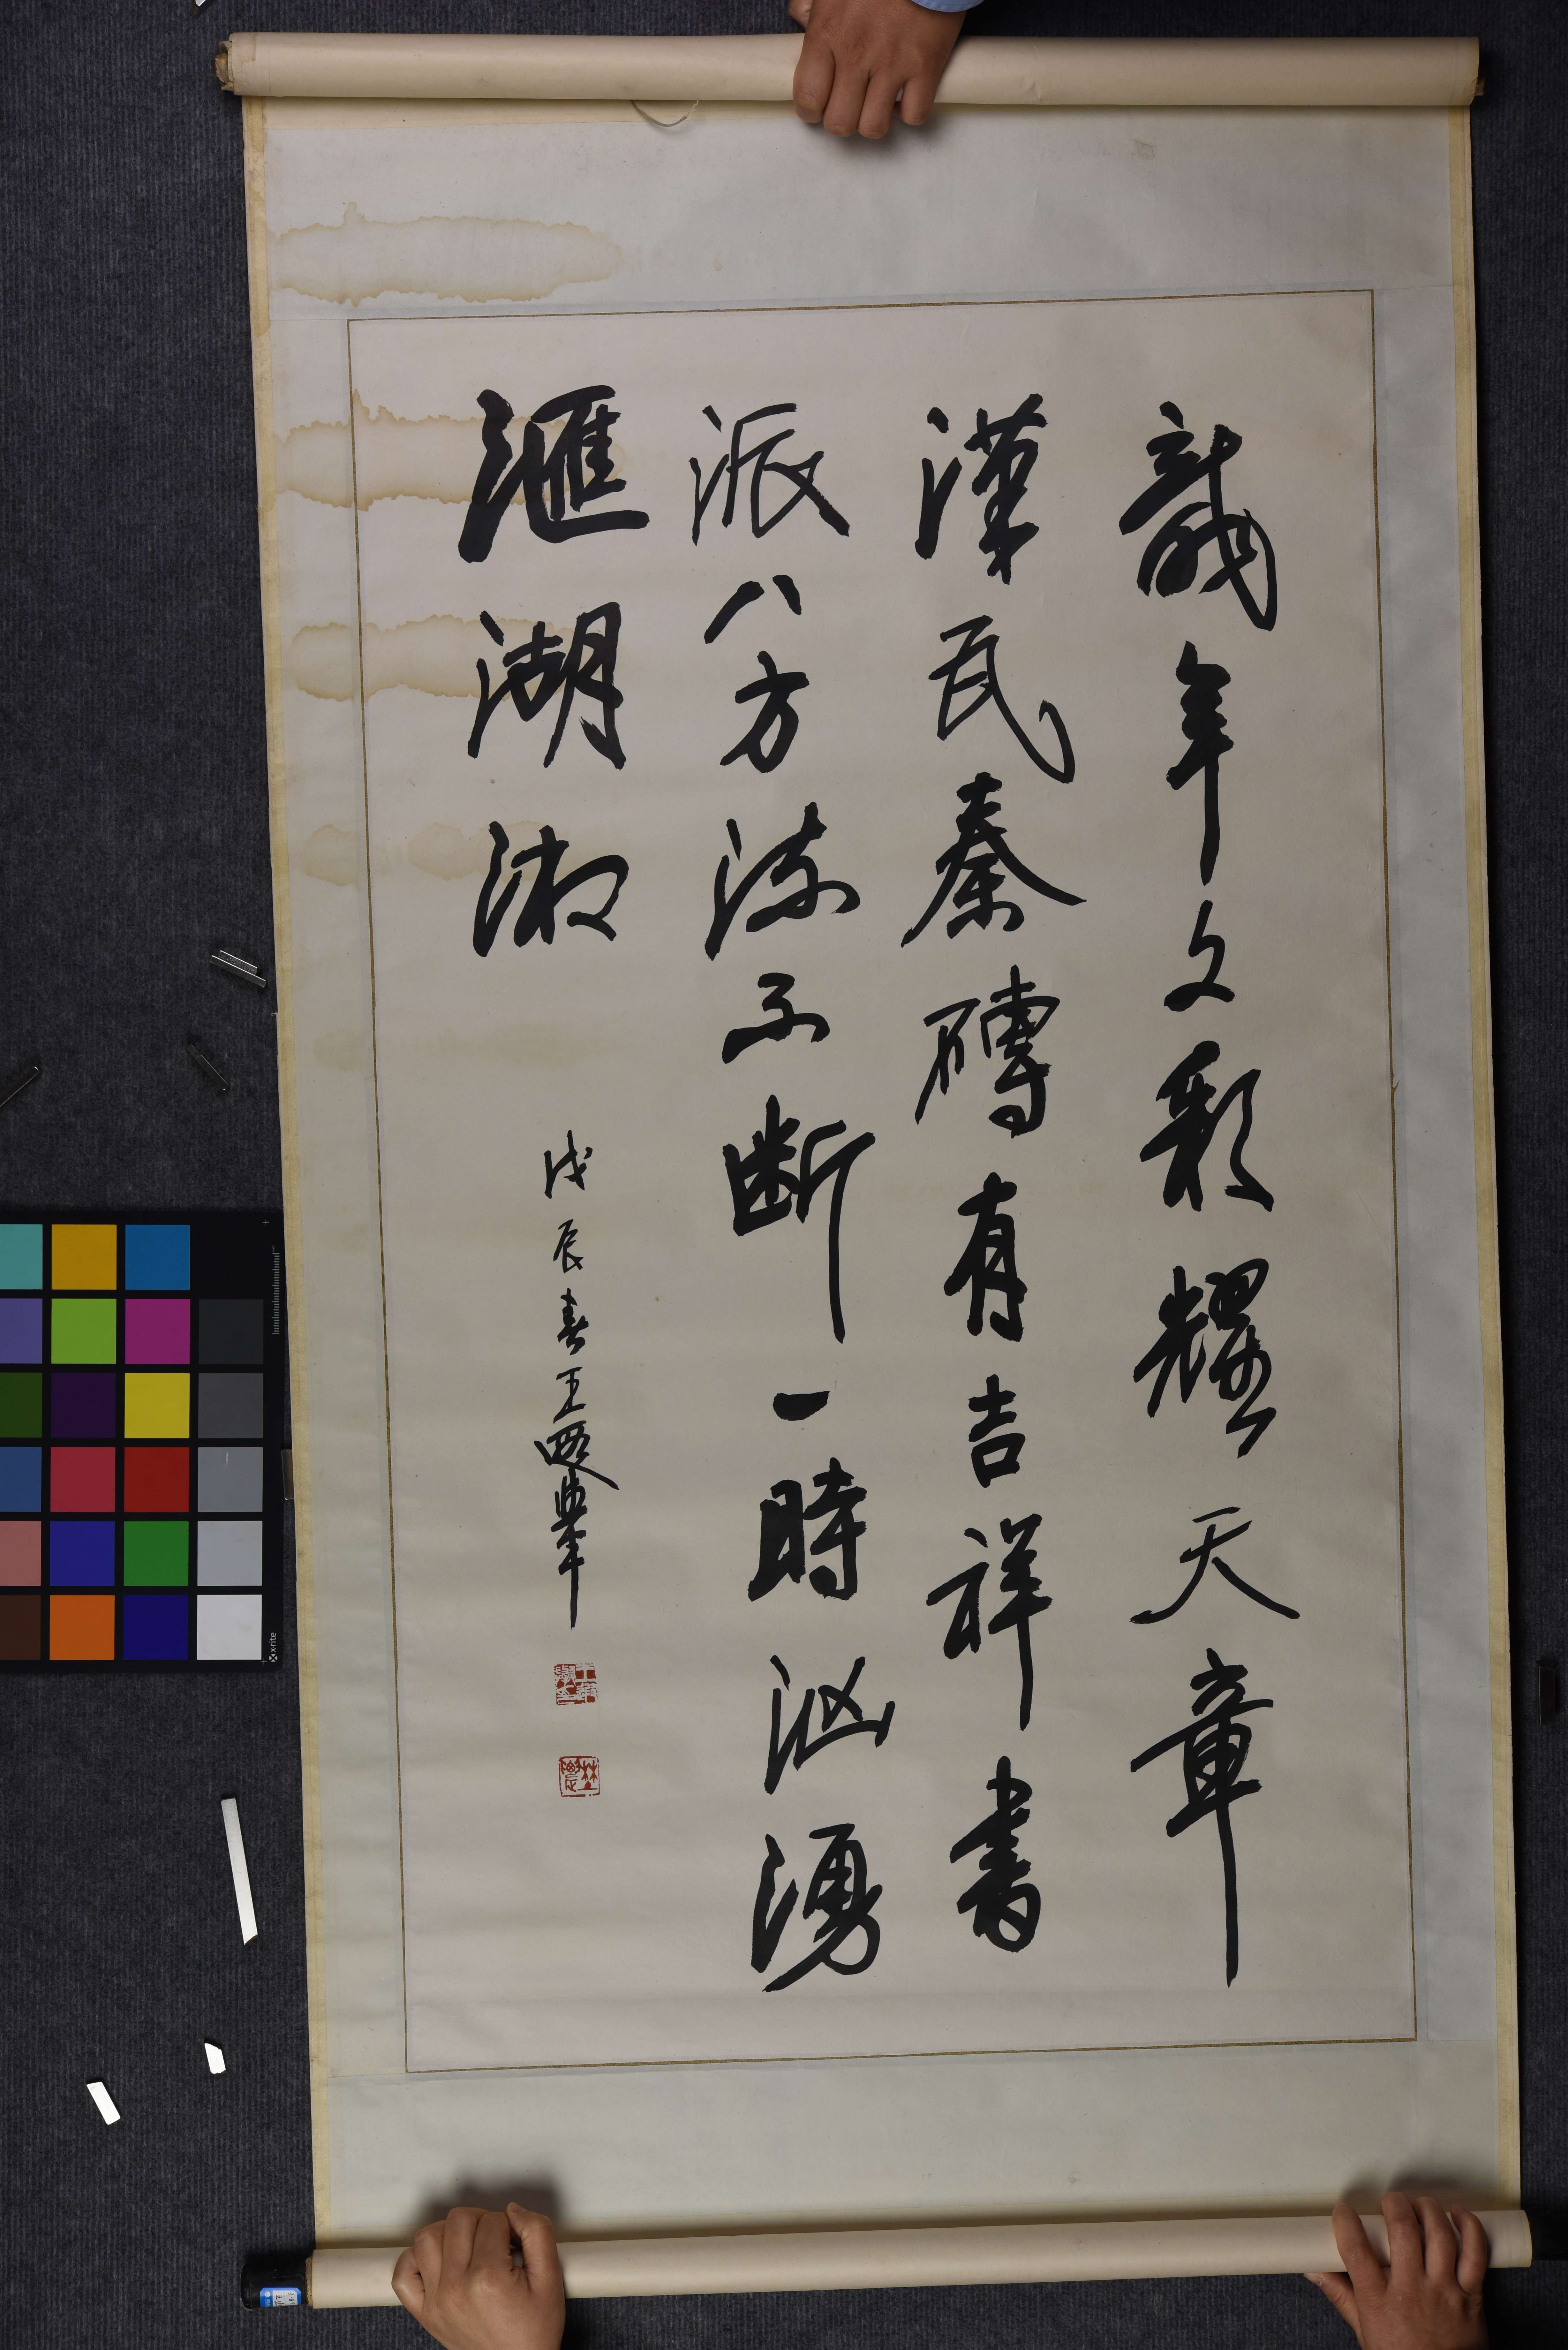 龍年文彩耀天章
漢瓦秦磚有吉祥書
派八方流不断一時汹湧
滙湖湘
戊辰春王遐舉
x-rite